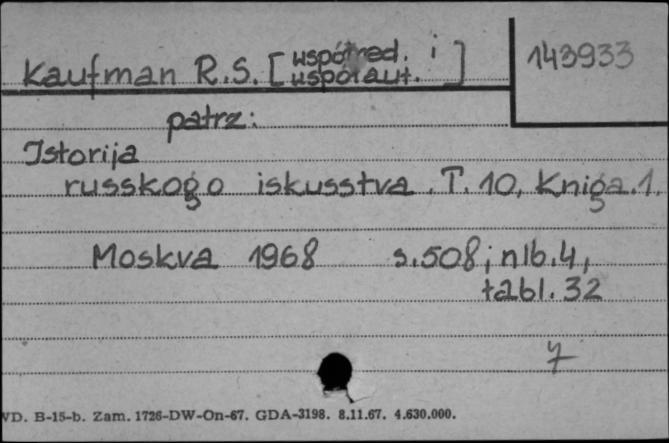 Kaufman R.S. [współred. i
współaut.]
143933
patrz:
Istorija
russkogo iskusstva. T. 10, Kniga. 1.
Moskva 1968 s. 508; nlb. 4,
tabl. 32
7
WD. B-15-b. Zam. 1726-DW-On-67. GDA-3198. 8.11.67. 4.630.000.